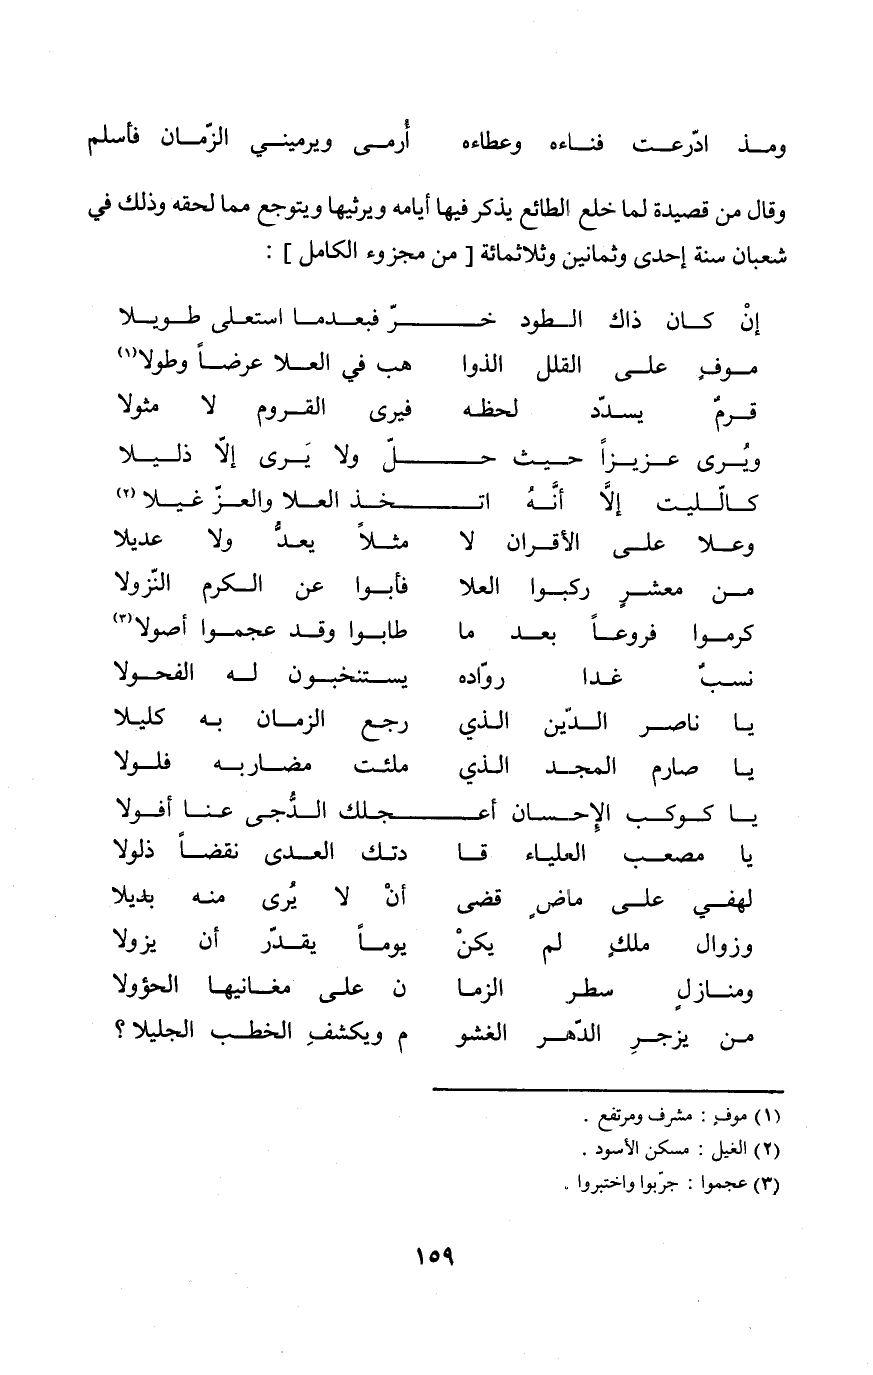 ومـذ ادّرعـت فنـاءه وعطاءه أُرمـى ويرمينـي الزّمـان فأسلم
وقال من قصيدة لما خلع الطائع يذكر فيها أيامه ويرثيها ويتوجع مما لحقه وذلك في
شعبان سنة إحدى وثمانين وثلاثمائة [ من مجزوء الكامل ] :
إنْ كـان ذاك الـطود خـرّ فبعـدمـا استعلى طـويـلا
مـوفٍ علـى القلل الذوا هب في العـلا عرضـاً وطولا(١)
قـرمٌ يسـدّد لحظـه فيرى القـروم لا مثولا
ويُـرى عـزيـزاً حيـث حـلّ ولا يَـرى إلّا ذلـيـلا
كـالّليـت إلاَّ أنَّـهُ اتـخـذ العـلا والعـزّ غيـلا (٢)
وعـلا علـى الأقـران لا مثـلاً يعـدُّ ولا عديلا
مـن معشـرٍ ركبـوا العلا فأبـوا عن الـكرم النّزولا
كرمـوا فروعـاً بعـد ما طابـوا وقـد عجمـوا أصولا(٣)
نسـبٌ غـدا روّاده يسـتنخبـون لـه الفحـولا
يـا ناصـر الـدّين الـذي رجـع الزمـان بـه كليـلا
يـا صارم المجـد الـذي ملئـت مضـاربـه فلـولا
يـا كـوكـب الإحـسـان أعـجـلك الـدُّجـى عنـا أفـولا
يا مصعـب العليـاء قـا دتـك العـدى نقضـاً ذلولا
لهفـي علـى ماضٍ قضى أنْ لا يُرى منـه بديلا
وزوال ملكٍ لم يكنْ يومـاً يقـدّر أن يزولا
ومنـازلٍ سطـر الزمـا ن علـى مغـانيهـا الحؤولا
مـن يزجـرِ الدّهـر الغشو م ويكشفِ الخطـب الجليلا ؟
(١) موفٍ : مشرف ومرتفع .
(٢) الغيل : مسكن الأسود .
(٣) عجموا : جرّبوا واختبروا .
١٥٩